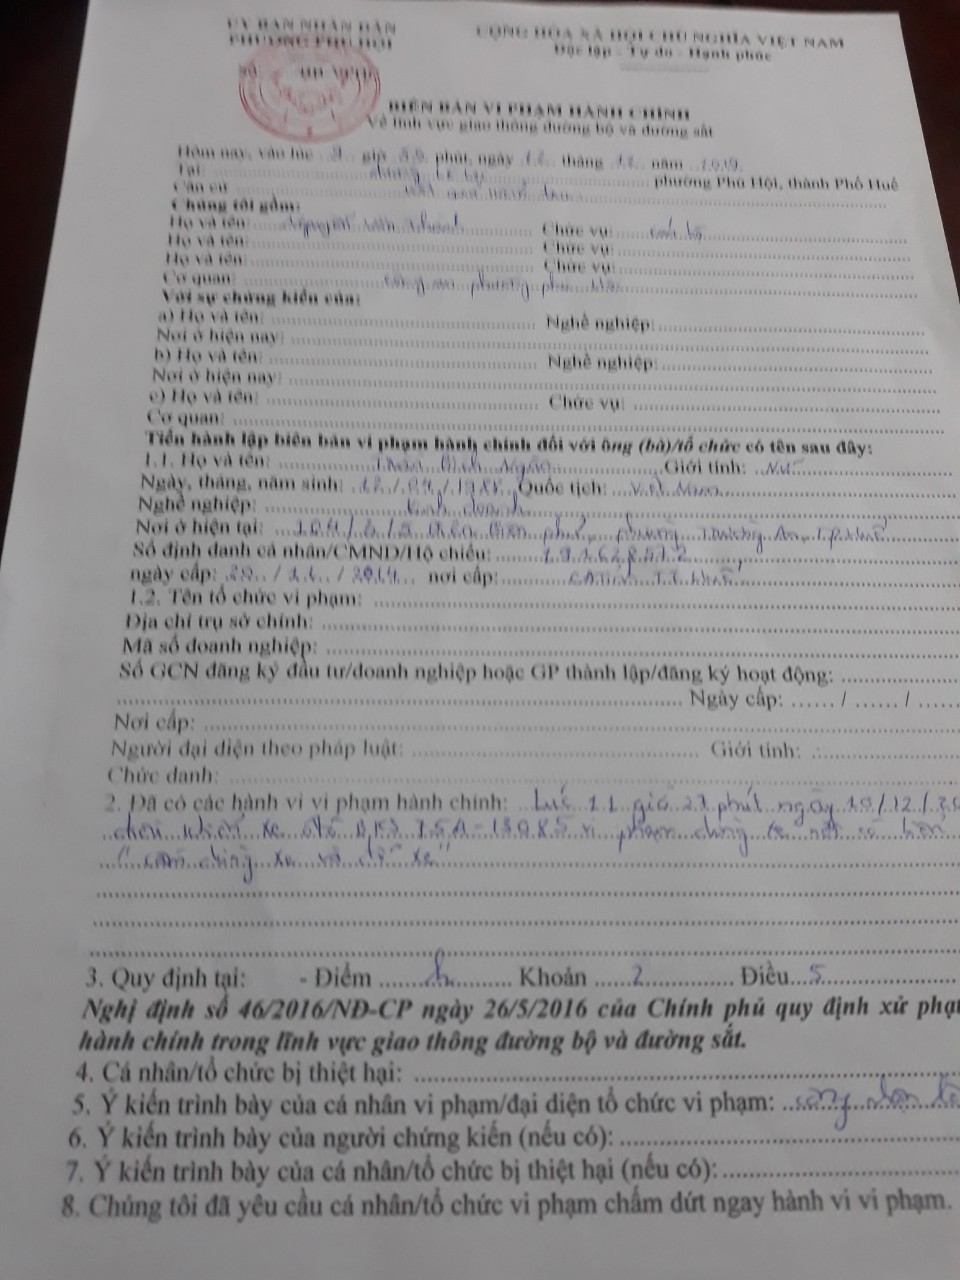 ỦY BAN NHÂN DÂN
PHƯỜNG PHÚ HỘI
CỘNG HÒA XÃ HỘI CHỦ NGHĨA VIỆT NAM
Độc lập - Tự do - Hạnh phúc
BIÊN BẢN VI PHẠM HÀNH CHÍNH
Về lĩnh vực giao thông đường bộ và đường sắt
Hôm nay, vào lúc giờ phút, ngày tháng năm 2019
Tại: phường Phú Hội, thành Phố Huế
Căn cứ
Chúng tôi gồm:
Họ và tên: Nguyễn Chức vụ: cán bộ
Họ và tên: Chức vụ:
Họ và tên: Chức vụ:
Cơ quan: công an phường phú hội
Với sự chứng kiến của:
a) Họ và tên: Nghề nghiệp:
Nơi ở hiện nay:
b) Họ và tên: Nghề nghiệp:
Nơi ở hiện nay:
c) Họ và tên: Chức vụ:
Cơ quan:
Tiến hành lập biên bản vi phạm hành chính đối với ông (bà)/tổ chức có tên sau đây:
1.1. Họ và tên: Bích Ngân Giới tính: Nữ
Ngày, tháng, năm sinh: Quốc tịch: Việt Nam
Nghề nghiệp: kinh doanh
Nơi ở hiện tại: Điện Biên phủ, phường Trường An, TP Huế
Số định danh cá nhân/CMND/Hộ chiếu:
ngày cấp: nơi cấp: CA tỉnh T.T. Huế
1.2. Tên tổ chức vi phạm:
Địa chỉ trụ sở chính:
Mã số doanh nghiệp:
Số GCN đăng ký đầu tư/doanh nghiệp hoặc GP thành lập/đăng ký hoạt động:
Ngày cấp: ...... / ...... / ......
Nơi cấp:
Người đại diện theo pháp luật: Giới tính:
Chức danh:
2. Đã có các hành vi vi phạm hành chính: Lúc 11 giờ 27 phút ngày 10/12/20
điều khiển xe ôtô BKS 75A-130.85 vi phạm dừng xe nơi có biển
"cấm dừng xe và đỗ xe"
3. Quy định tại: - Điểm h Khoản 2 Điều 5
Nghị định số 46/2016/NĐ-CP ngày 26/5/2016 của Chính phủ quy định xử phạt
hành chính trong lĩnh vực giao thông đường bộ và đường sắt.
4. Cá nhân/tổ chức bị thiệt hại:
5. Ý kiến trình bày của cá nhân vi phạm/đại diện tổ chức vi phạm:
6. Ý kiến trình bày của người chứng kiến (nếu có):
7. Ý kiến trình bày của cá nhân/tổ chức bị thiệt hại (nếu có):
8. Chúng tôi đã yêu cầu cá nhân/tổ chức vi phạm chấm dứt ngay hành vi vi phạm.